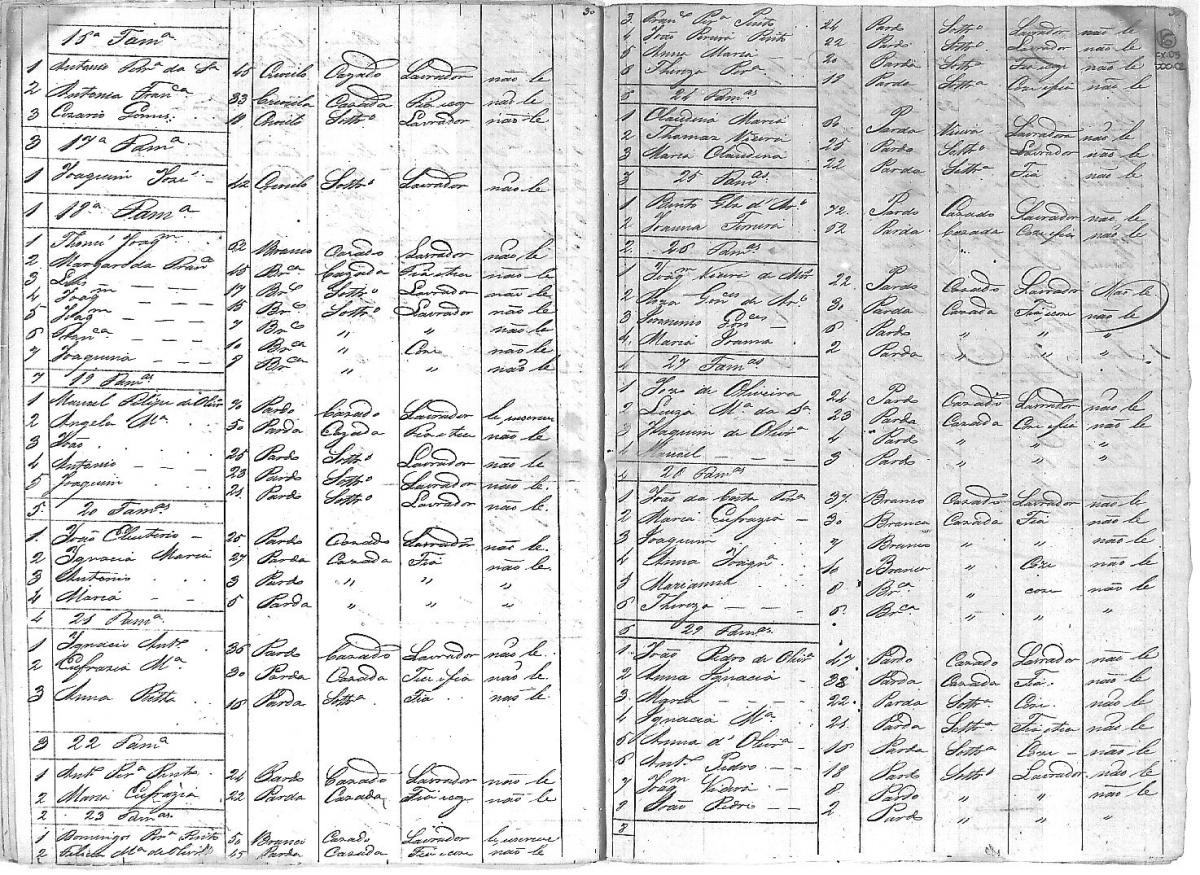 15ª Famª
1 Antonio Perª da Sª 45 Crioulo Cazado Lavrador não le
2 Antonia Francª 33 Crioula Cazada Fia e coz não le
3 Cezario Gomes 11 Crioulo Soltº Lavrador não le
3 17ª Famª
1 Joaquim José 42 Crioulo Soltº Lavrador não le
1 18ª Famª
1 Thomé Joaqm 52 Branco Cazado Lavrador não le
2 Margarida Francª 45 Brca Cazada Fia e tece não le
3 Luis 17 Brco Soltº Lavrador não le
4 Joaqm 15 Brco Soltº Lavrador não le
5 7 Brco " " não le
6 Francª 10 Brca " Coze não le
7 Joaquina 8 Brca " " não le
7 19 Famas
1 Manoel Felipe de Olivª 70 Pardo Cazado Lavrador le, escreve
2 Angela Mª 50 Parda Cazada Fia e tece não le
3 João 25 Pardo Soltº Lavrador não le
4 Antonio 23 Pardo Soltº Lavrador não le
5 Joaquim 21 Pardo Soltº Lavrador não le
5 20 Famas
1 João Eleuterio 25 Pardo Cazado Lavrador não le
2 Ignacia Maria 27 Parda Cazada Fia não le
3 Antonio 3 Pardo " " "
4 Maria 5 Parda " " "
4 21 Famª
1 Ignacio Antº 36 Pardo Cazado Lavrador não le
2 Eufrazia Mª 30 Parda Cazada não le
3 Anna 15 Parda Soltª Fia não le
3 22 Famª
1 Antº Perª Pinto 24 Pardo Cazado Lavrador não le
2 Maria Eufrazia 22 Parda Cazada Fia e coz não le
2 23 Famas
1 Domingos Perª Pinto 50 Branco Cazado Lavrador le, escreve
2 Felicia Mª de Olivª 45 Parda Cazada Fia e coze não le
3 Francº Perª Pinto 24 Pardo Soltº Lavrador não le
4 João Pereira Pinto 22 Pardo Soltº Lavrador não le
5 Anna Maria 20 Parda Soltª não le
6 Thereza Perª 18 Parda Soltª Coze e fia não le
6 24 Famas
1 Claudina Maria Parda Viuva Lavradora não le
2 Thomaz Vieira 25 Pardo Soltº Lavrador não le
3 Maria Claudina 22 Parda Soltª Fia não le
3 25 Famas
1 Bento 72 Pardo Cazado Lavrador não le
2 Joanna 52 Parda Cazada Coze e fia não le
2 26 Famas
1 Joaqm Vieira 22 Pardo Cazado Lavrador Não le
2 Roza 30 Parda Cazada Fia e coze não le
3 Jeronimo 6 Pardo " " "
4 Maria Joanna 2 Parda " " "
4 27 Famas
1 Joze de Oliveira 24 Pardo Cazado Lavrador não le
2 Luiza Mª da Sª 23 Parda Cazada Coze e fia não le
3 Joaquim de Olivª 4 Pardo " " "
4 Manoel 3 Pardo " " "
4 28 Famas
1 João da Costa Perª 37 Branco Cazado Lavrador não le
2 Maria Eufrazia 30 Branca Cazada Fia não le
3 Joaquim 7 Branco " não le
4 Anna Joaqnª 10 Branca " Coze não le
5 Marianna 8 Brca " coze não le
6 Thereza 6 Brca " " "
6 29 Famas
1 João Pedro de Olivª 47 Pardo Cazado Lavrador não le
2 Anna Ignacia 38 Parda Cazada Fia não le
3 Maria 22 Parda Soltª Coze não le
4 Ignacia Mª 21 Parda Soltª Fia e tece não le
5 Anna d'Olivª Parda Soltª Coze não le
6 Antº Pedro 18 Pardo Soltº Lavrador não le
7 Joaqm 8 Pardo " " não le
8 João Pedro 2 Pardo " " "
8